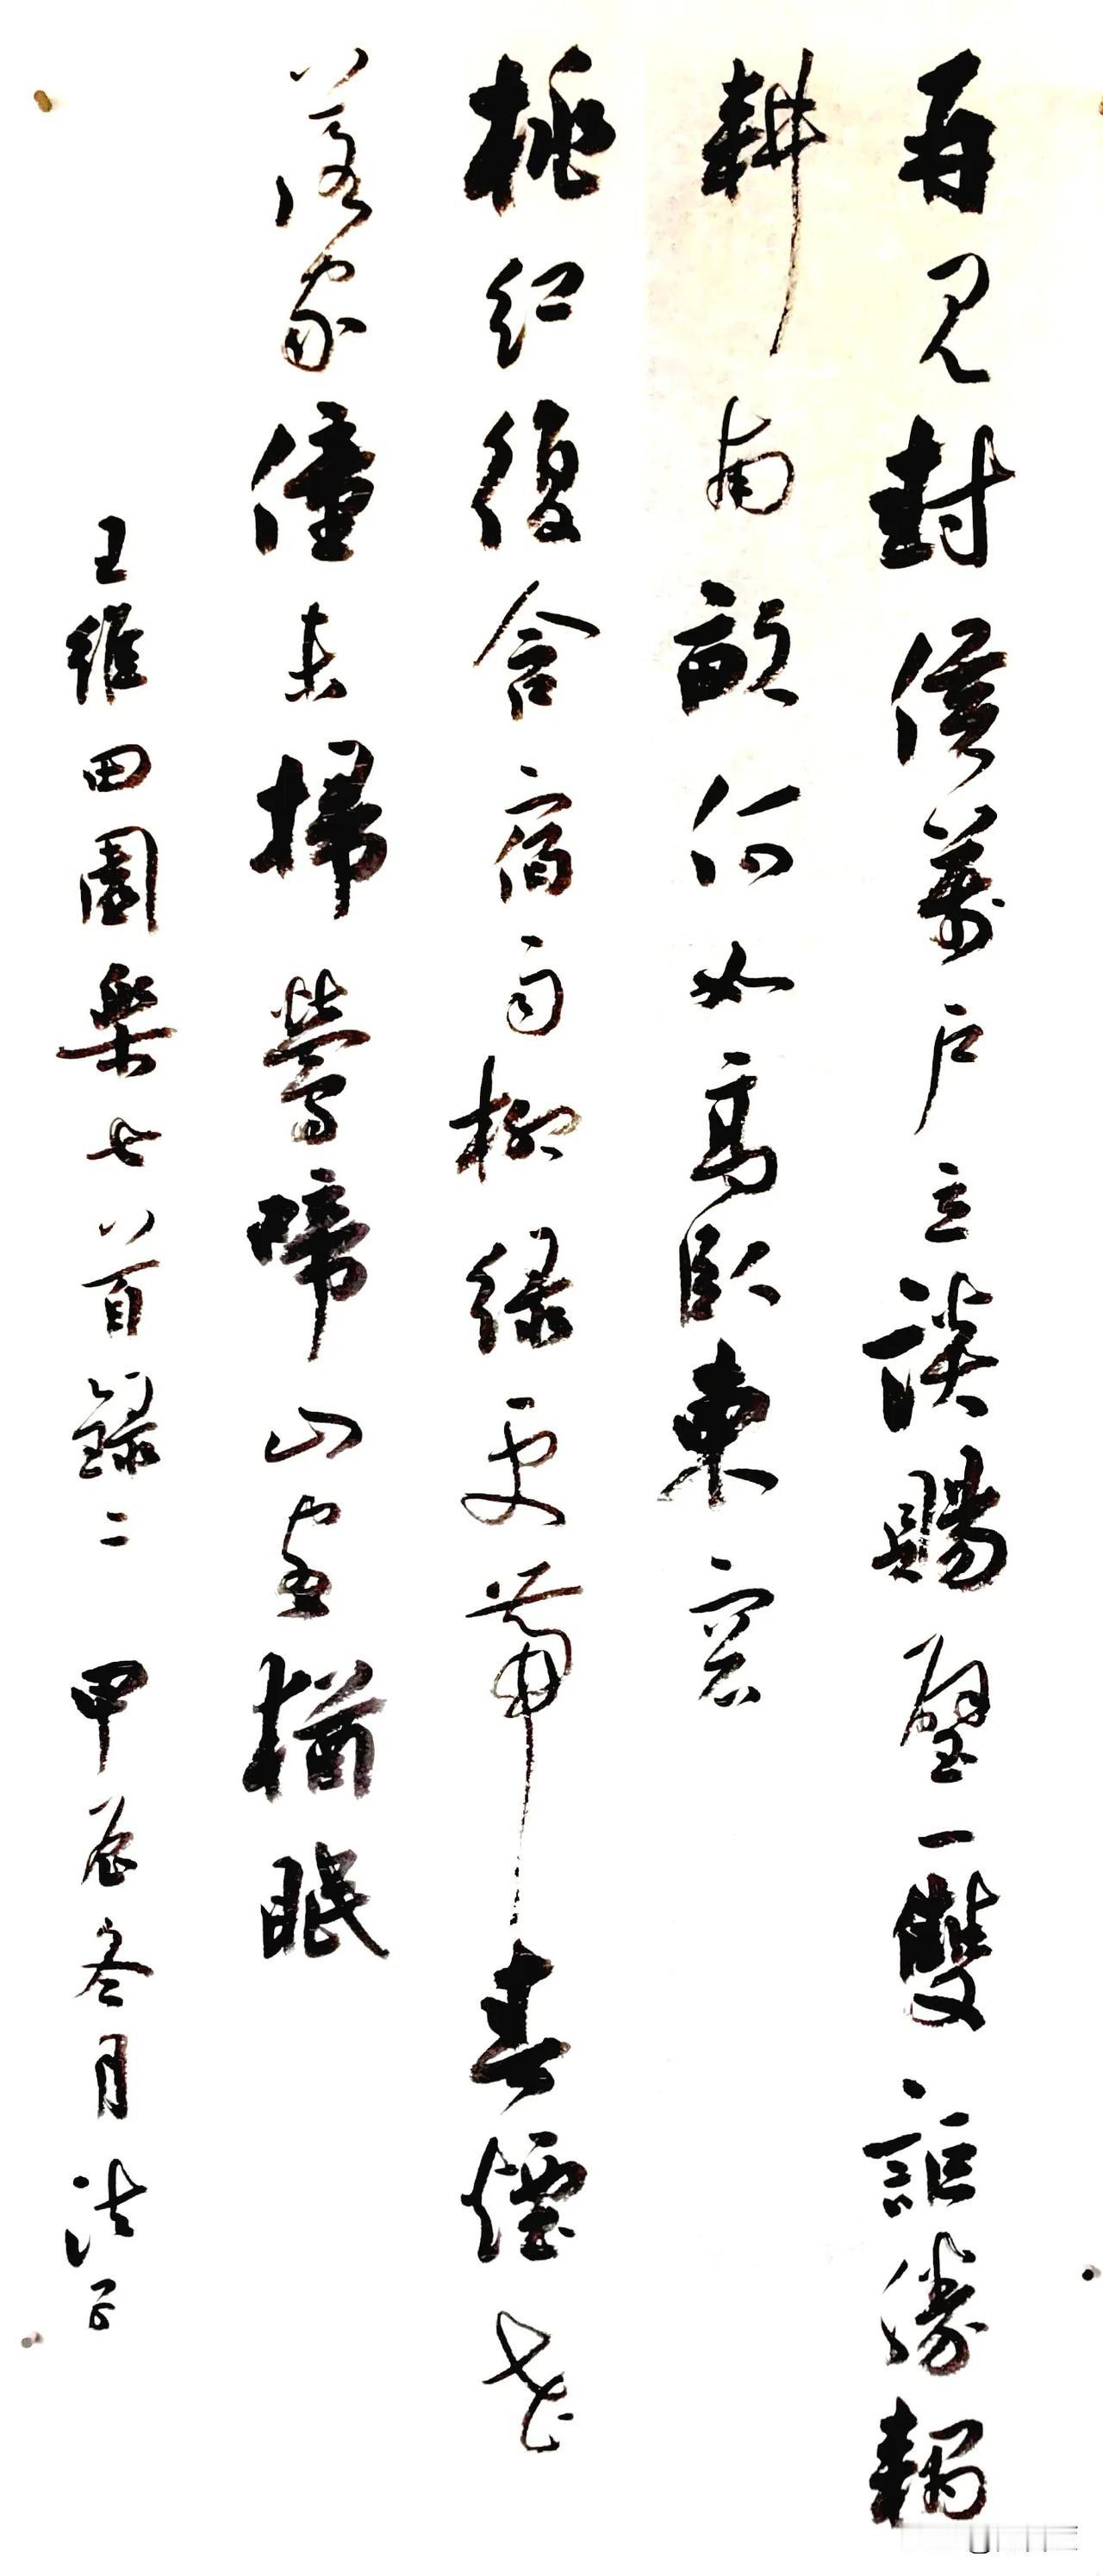 再見封侯萬戶立談賜璧一雙詎勝耦
耕南畝何如高臥東窗
桃紅復含宿雨柳綠更帶春煙花
落家僮未掃鶯啼山客猶眠
王維田園樂七首錄二 甲辰冬月